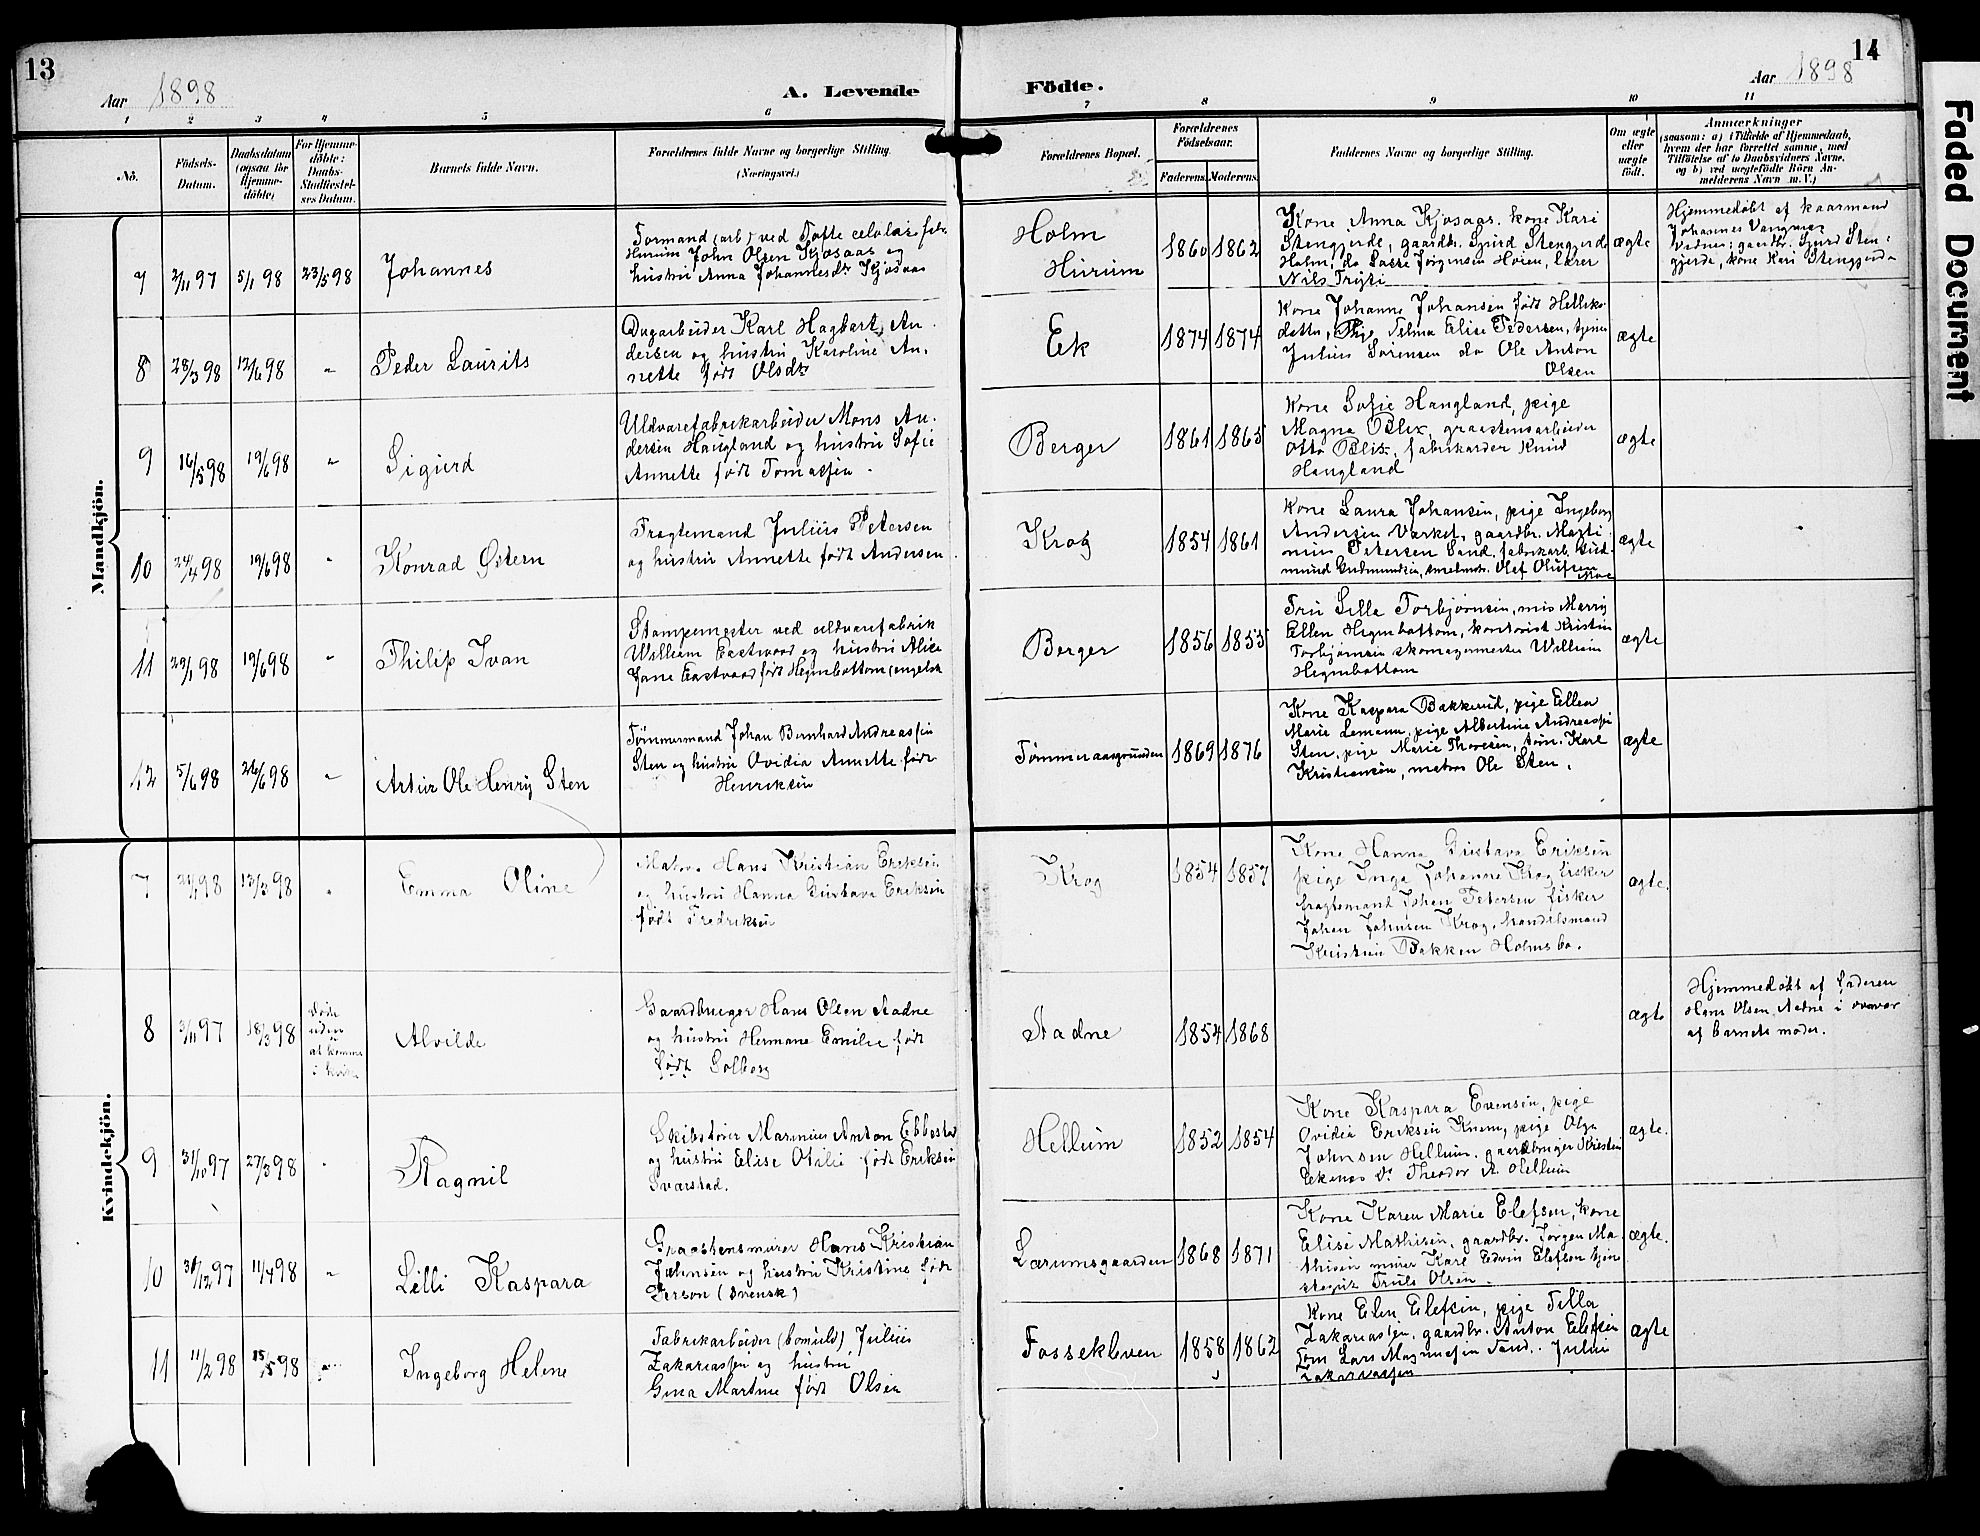 13
14
Aar 1898
A. Levende
Födte.
Aar 1898
1 2 3 4 5 6 7 8 9 10 11
No.
Födsels-
Datum.
Daabsdatum
(ogsaa for
Hjemme-
döbte)
For Hjemme-
döbte:
Daabs-
Stadfæstel-
ses Datum.
Barnets fulde Navn.
Forældrenes fulde Navne og borgerlige Stilling.
(Næringsvei.)
Forældrenes Bopæl.
Forældrenes
Födselsaar.
Faderens. Moderens.
Faddernes Navne og borgerlige Stilling.
Om ægte
eller
uægte
födt.
Anmærkninger
(saasom: a) i Tilfælde af Hjemmedaab,
hvem der har forrettet samme, med
Tilföielse af to Daabsvidners Navne,
og b) ved uægtefödte Börn An-
melderens Navn m.V.)
Mandkjön.
7
2/11 97
5/1 98
23/5 98
Johannes
Formand (arb) ved Tofte celulosefabr.
Hurum John Olsen Kjosaas og
hustru Anna Johannesdtr Kjosaas
Holm
Hurum
1860 1862
Kone Anna Kjosaas, kone Kari
Stengjerde, gaardbr. Sjurd Stengjerde
Holm, do Lasse Jørgensen Høien, lærer
Nils Trijti
ægte
Hjemmedøbt af kaarmand
Johannes
Vidner: gaardbr. Sjurd Sten-
gjerde, kone Kari Stengjerde
8
28/3 98
12/6 98
"
Peder Laurits
Dagarbeider Karl Hagbart An-
dersen og hustru Karoline An-
nette født Olsdtr
Ek
1874 1874
Kone Johanne Johansen født Helleks-
datter, Pige Telma Elise Pedersen, tjener
Julius Sørensen do Ole Anton
Olsen
ægte
9
16/5 98
19/6 98
"
Sigurd
Uldvarefabrikarbeider Mons An-
dersen Haugland og hustru Sofie
Annette født Tomassen.
Berger
1861 1865
Kone Sofie Haugland, pige
Magna Blix, graastensarbeider
Otto Blix, fabrikarder Knud
Haugland
ægte
10
24/4 98
19/6 98
"
Konrad Østern
Fragtemand Julius Petersen
og hustru Annette født Andersen.
Krog
1854 1861
Kone Laura Johansen, pige Ingeborg
Andersen Værket, gaardbr. Marti-
nius Petersen Sand, fabrikarb. Gud-
mund Gudmundsen, Olef Olufsen
Moe
ægte
11
29/1 98
19/6 98
"
Philip Ivan
Stampemester ved uldvarefabrik
William Eastwood og hustru Alice
Jane Eastwood født Heginbottom (engelsk
Berger
1856 1855
Fru Silla Torbjørnsen, mis Merrry
Ellen Heginbottom, kontorist Kristen
Torbjørnsen skomagermester William
Heginbottom
ægte
12
5/6 98
26/6 98
"
Artur Ole Henry Sten
Tømmermand Johan Bernhard Andreassen
Sten og hustru Ovidia Annette født
Henriksen
Tømmeraasgrunden
1869 1876
Kone Kaspara Bakkerud, pige Ellen
Marie Lemann, pige Albertine Andreassen
Sten, pige Marie Thoresen, tøm. Karl
Kristiansen, matros Ole Sten.
ægte
Kvindekjön.
7
98
13/3 98
"
Emma Oline
Matros Hans Kristian Eriksen
og hustru Hanna Gustava Eriksen
født Fredriksen
Krog
1854 1857
Kone Hanna Gustava Eriksen
pige Inga Johanne Krog fisker
fragtemand Johan Petersen fisker
Johan Johnsen Krog, handelsmand
Kristian Bakken Holmsbo.
ægte.
8
3/11 97
18/3 98
døde
uden
at komme
i kirken
Alvilde
Gaardbruger Hans Olsen Aadne
og hustru Hermane Emilie født
født Solberg
Aadne
1854 1868
ægte
Hjemmedøbt af faderen
Hans Olsen Aadne i overvær
af barnets moder.
9
31/10 97
27/3 98
"
Ragnil
Skibsfører Marinius Anton Ebbestad
og hustru Elise Otilie født Eriksen
Sværstad.
Hellum
1852 1854
Kone Kaspara Evensen, pige
Ovidia Eriksen Knem, pige Olga
Johnsen Hellum, gaardbruger Kristen
Ekenes Theodor A. Hellum
ægte.
10
30/12 97
11/4 98
"
Lilli Kaspara
Graastensmurer Hans Kristian
Johnsen og hustru Kristine født
Person (svensk)
Lærumsgaarden
1868 1871
Kone Karen Marie Elefsen, kone
Elise Mathisen, gaardbr. Jørgen Ma-
thisen murer Karl Edvin Elefsen tjen-
Truls Olsen.
ægte.
11
11/2 98
15/5 98
"
Ingeborg Helene
Fabrikarbeider (bomuld) Julius
Zakariassen og hustru
Gina Martine født Olsen
Fossekleven
1858 1862
Kone Elen Elefsen, pige Tilla
Zakariassen, gaardbr. Anton Elefsen
Tom Lars Magnussen Sand. Julius
Zakariassen
ægte
Faded Document